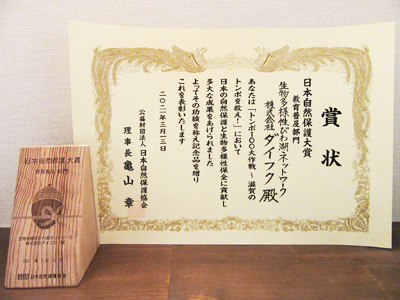 賞状
日本自然保護大賞
教育普及部門
生物多様性びわ湖ネットワーク
株式会社ダイフク殿
あなたは「トンボ100大作戦〜滋賀の
トンボを救え!」において
日本の自然保護と生物多様性保全に貢献し
多大な成果をあげられました
よってその功績を称え記念品を贈り
これを表彰いたします
二〇二一年三月十三日
公益財団法人 日本自然保護協会
理事長 亀山 章
日本自然保護大賞